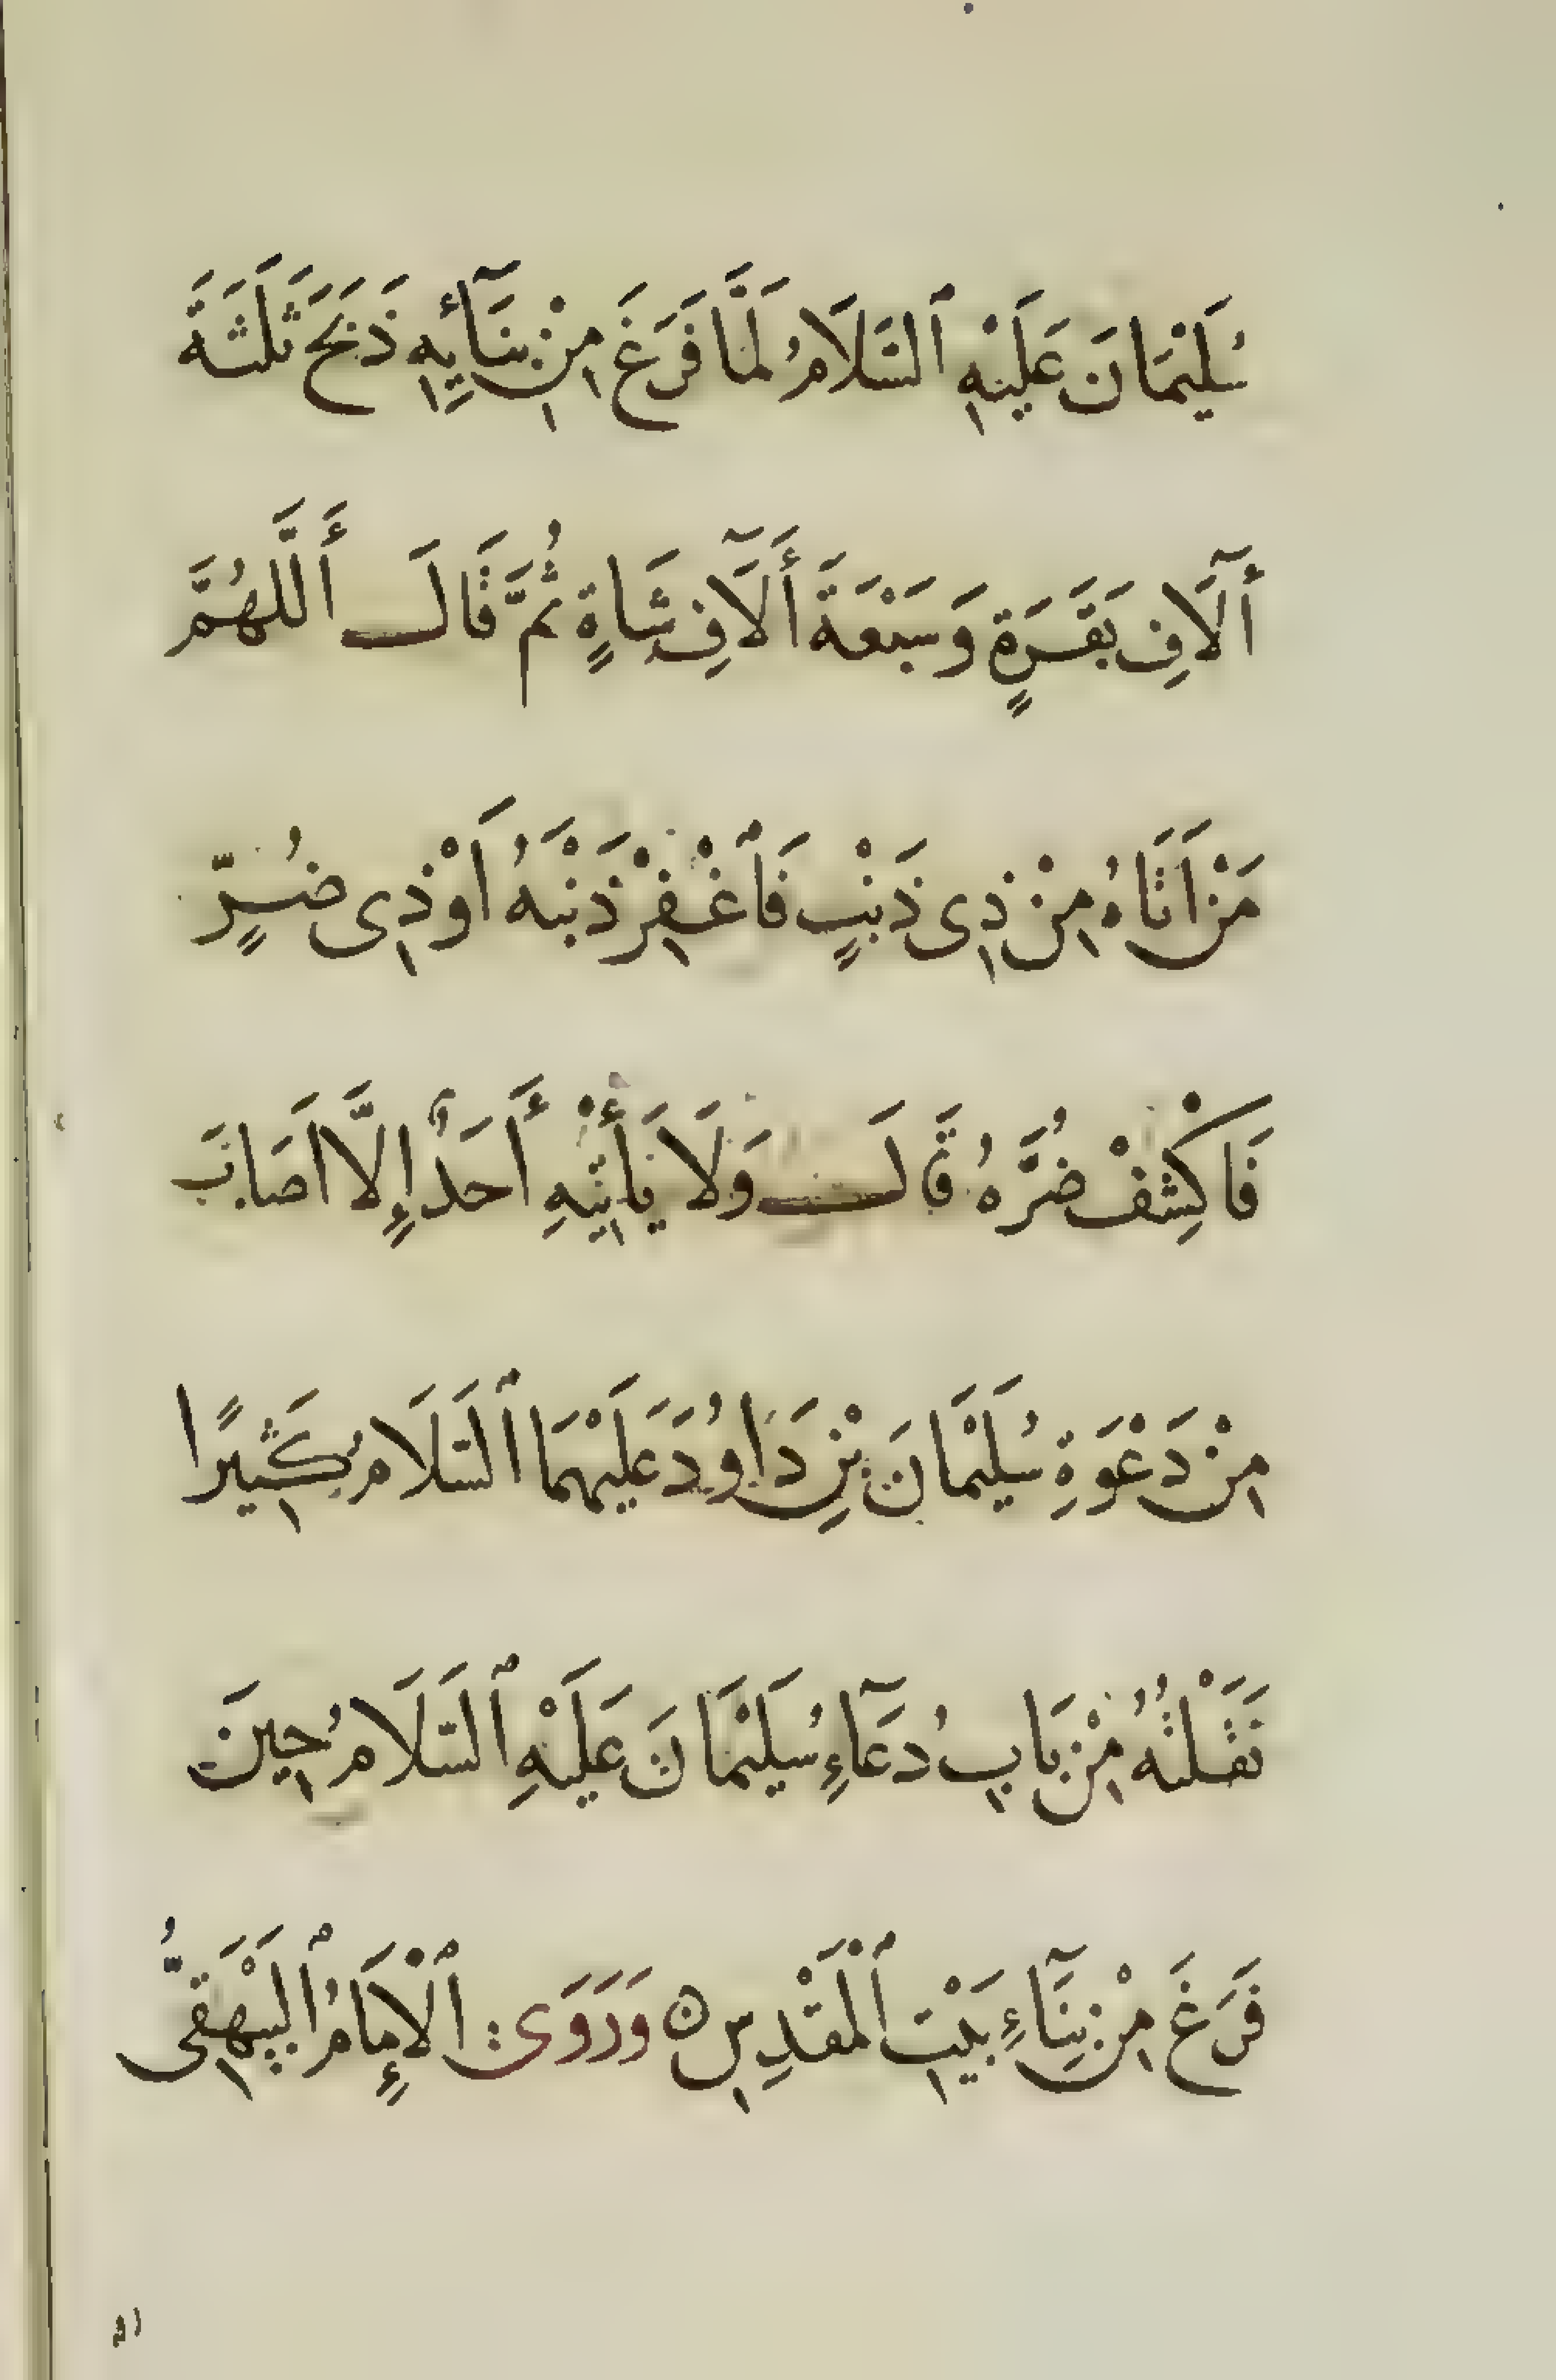 سُلَيْمَانَ عَلَيْهِ ٱلسَّلَامُ لَمَّا فَرَغَ مِنْ بِنَآئِهِ ذَبَحَ ثَلَثَةَ
أَلَآفِ بَقَرَةٍ وَسَبْعَةَ أَلَآفِ شَاةٍ ثُمَّ قَالَ أَللَّهُمَّ
مَنْ اَتَاهُ مِنْ ذِى ذَنْبٍ فَٱغْفِرْ ذَنْبَهُ اَوْ ذِى ضُرٍّ
فَاكْشِفْ ضُرَّهُ قَالَ وَلَا يَأْتِيهِ أَحَدٌ إِلَّا اَصَابَ
مِنْ دَعْوَةِ سُلَيْمَانَ بْنِ دَاوُدَ عَلَيْهِمَا ٱلسَّلَامُ كَثِيرًا
نَقَلْتُهُ مِنْ بَابِ دُعَآءِ سُلَيْمَانَ عَلَيْهِ ٱلسَّلَامُ حِينَ
فَرَغَ مِنْ بِنَآءِ بَيْتِ ٱلْمَقْدِسِ ۝ وَرَوَى ٱلْإِمَامُ ٱلْبَيْهَقِىُّ